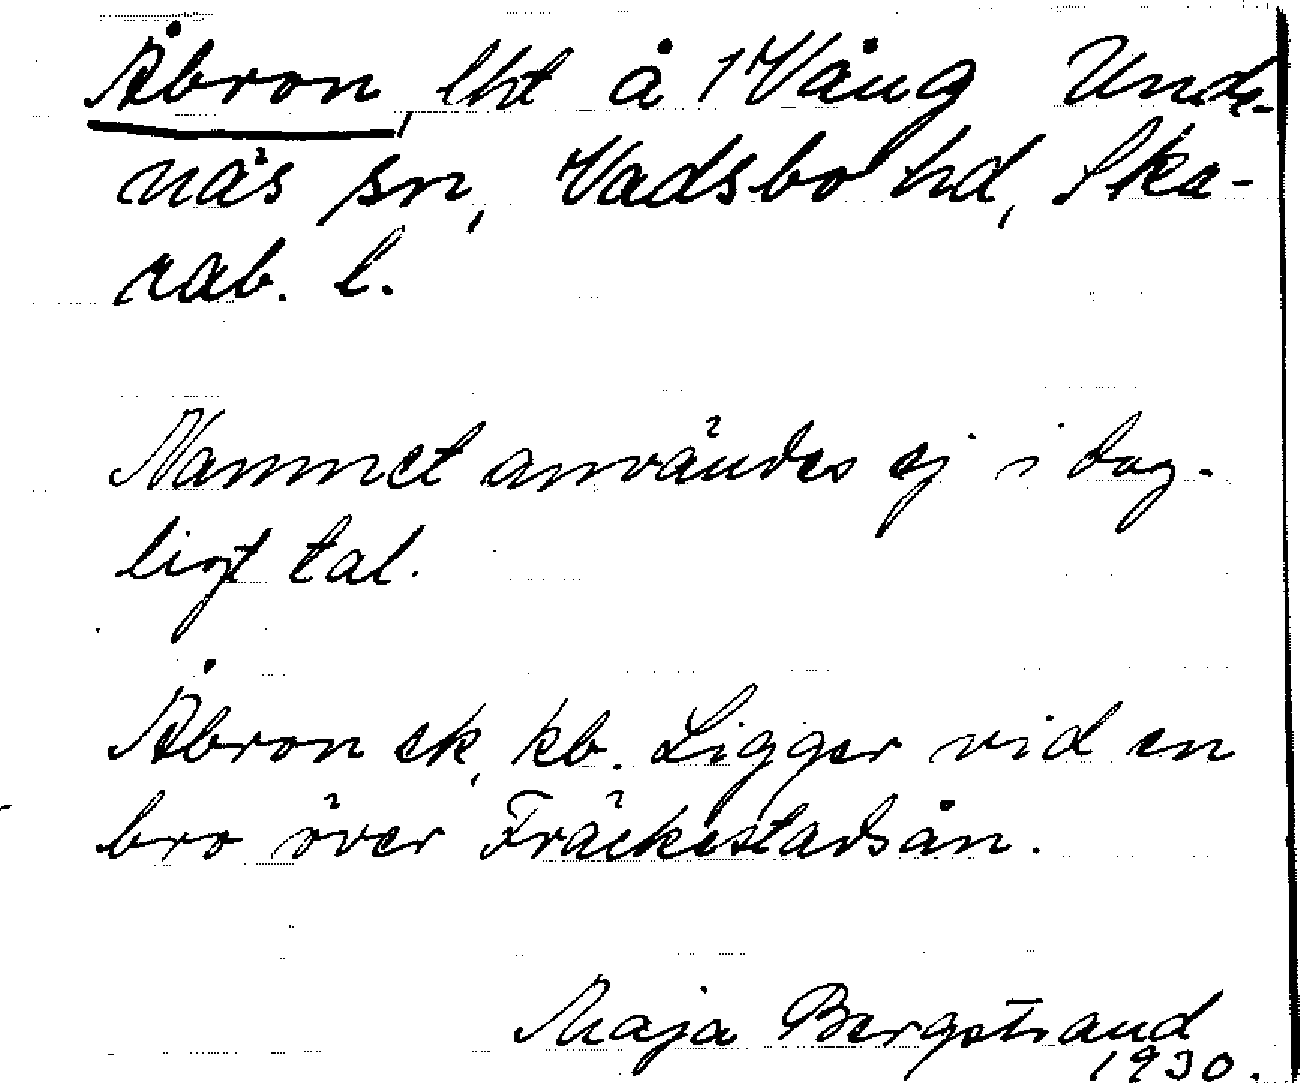 Åbron, lht å 1 Vång Unde-
näs sn, Vadsbo hd, Ska-
rab. l.
Namnet användes ej i dag-
ligt tal.
Åbron ek, kb. Ligger vid en
bro över Fräckestadsån.
Maja Bergstrand
1930.